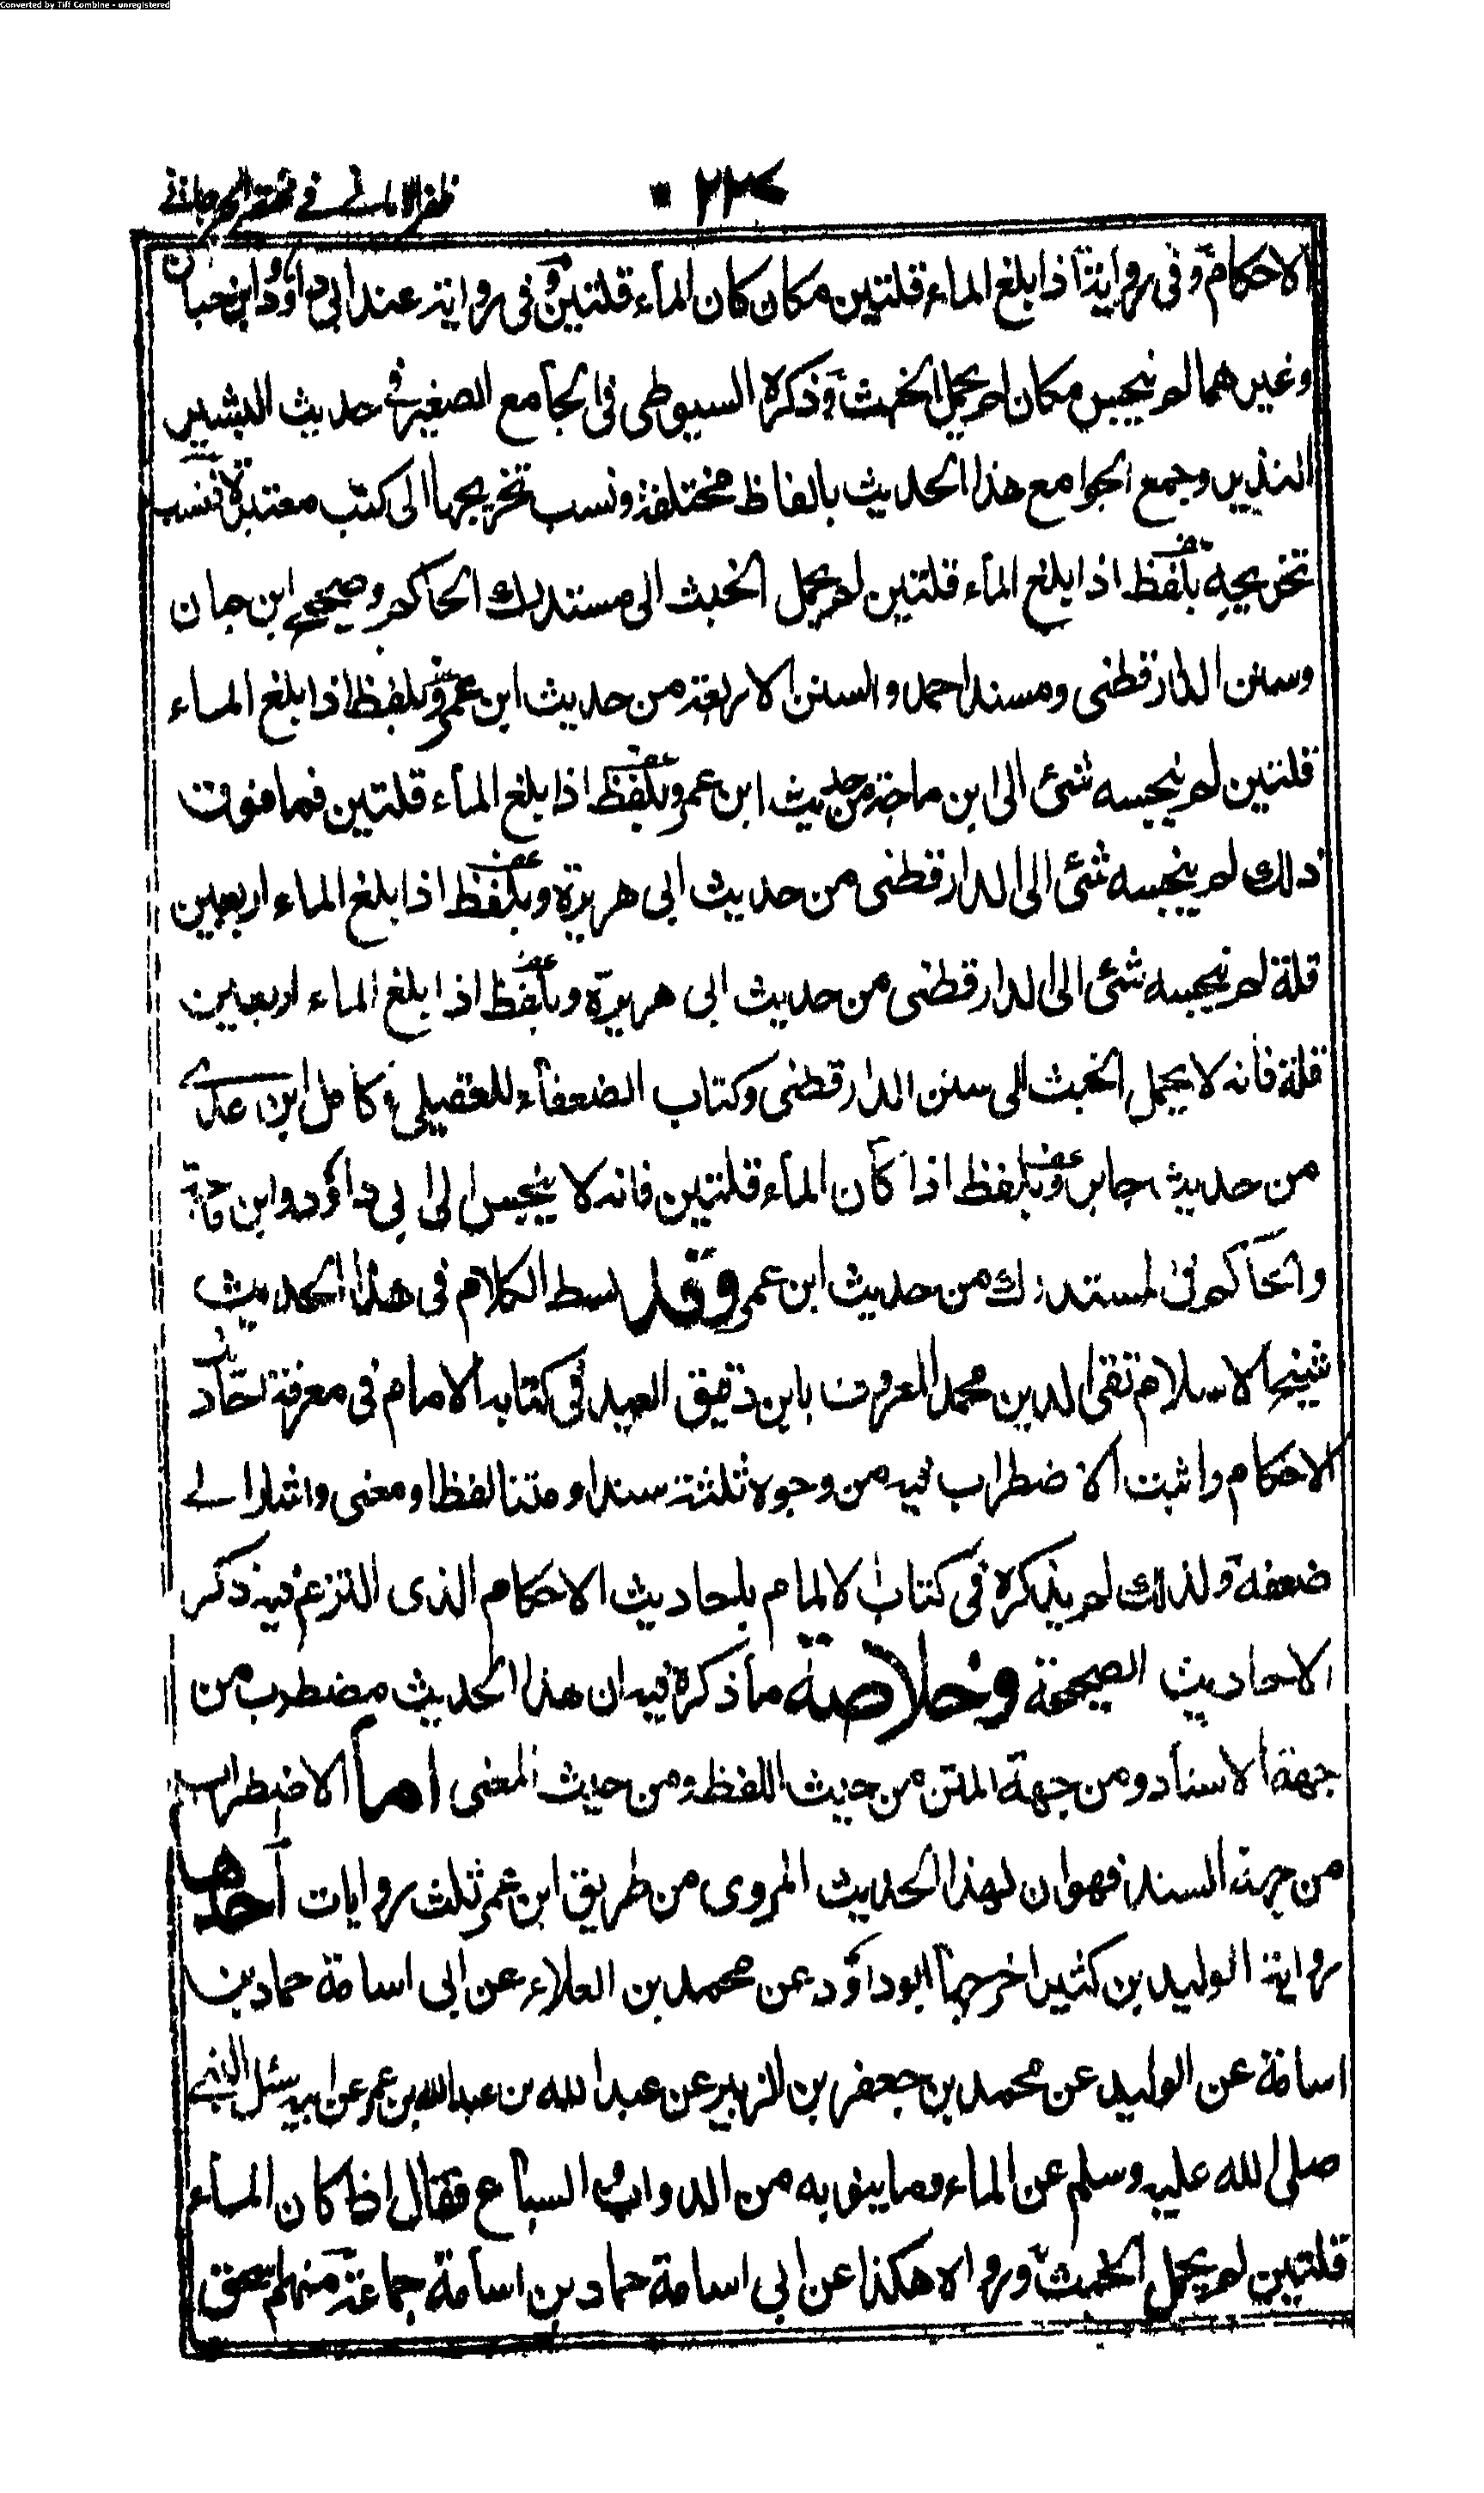 Converted by Tiff Combine - unregistered
٢٢٧
ظفر الامانے فے مختصر الجرجانے
الاحكام وفى رواية اذا بلغ الماء قلتين مكان كان الماء قلتين وفى رواية عند ابى داؤد وابن حبان
وغيرهما لم ينجس مكان لم يحمل الخبث وذكره السيوطى فى الجامع الصغير فے حديث البشير
النذير وجمع الجوامع هذا الحديث بالفاظ مختلفة ونسب تخريجها الى كتب معتبرة فنسب
تخريجه بلفظ اذا بلغ الماء قلتين لم يحمل الخبث الى مستدرك الحاكم وصحيح ابن حبان
وسنن الدارقطنى ومسند احمد والسنن الاربعة من حديث ابن عمر وبلفظ اذا بلغ الماء
قلتين لم ينجسه شئ الى ابن ماجة من حديث ابن عمر وبلفظ اذا بلغ الماء قلتين فما فوق
ذلك لم ينجسه شئ الى الدارقطنى من حديث ابى هريرة وبلفظ اذا بلغ الماء اربعين
قلة لم ينجسه شئ الى الدارقطنى من حديث ابى هريرة وبلفظ اذا بلغ الماء اربعين
قلة فانه لا يحمل الخبث الى سنن الدارقطنى وكتاب الضعفاء للعقيلى وكامل ابن عدے
من حديث جابر وبلفظ اذا كان الماء قلتين فانه لا ينجس الى ابى داؤد وابن ماجة
والحاكم فى المستدرك من حديث ابن عمر وقد بسط الكلام فى هذا الحديث
شيخ الاسلام تقى الدين محمد المعروف بابن دقيق العيد فى كتابه الامام فى معرفة احاديث
الاحكام واثبت الاضطراب فيه من وجوه ثلثة سندا ومتنا لفظا ومعنى واشار الے
ضعفه ولذلك لم يذكره فى كتاب الالمام باحاديث الاحكام الذى التزم فيه ذكر
الاحاديث الصحيحة وخلاصة ما ذكره فيه ان هذا الحديث مضطرب من
جهة الاسناد ومن جهة المتن من حيث اللفظ ومن حيث المعنى اما الاضطراب
من جهة السند فهو ان لهذا الحديث المروى من طريق ابن عمر ثلث روايات احدها
رواية الوليد بن كثير اخرجها ابو داؤد عن محمد بن العلاء عن ابى اسامة حماد بن
اسامة عن الوليد عن محمد بن جعفر بن الزبير عن عبد الله بن عبد الله بن عمر عن ابيه سئل النبے
صلى الله عليه وسلم عن الماء وما ينوبه من الدواب والسباع فقال اذا كان الماء
قلتين لم يحمل الخبث ورواه هكذا عن ابى اسامة حماد بن اسامة جماعة منهم اسحق